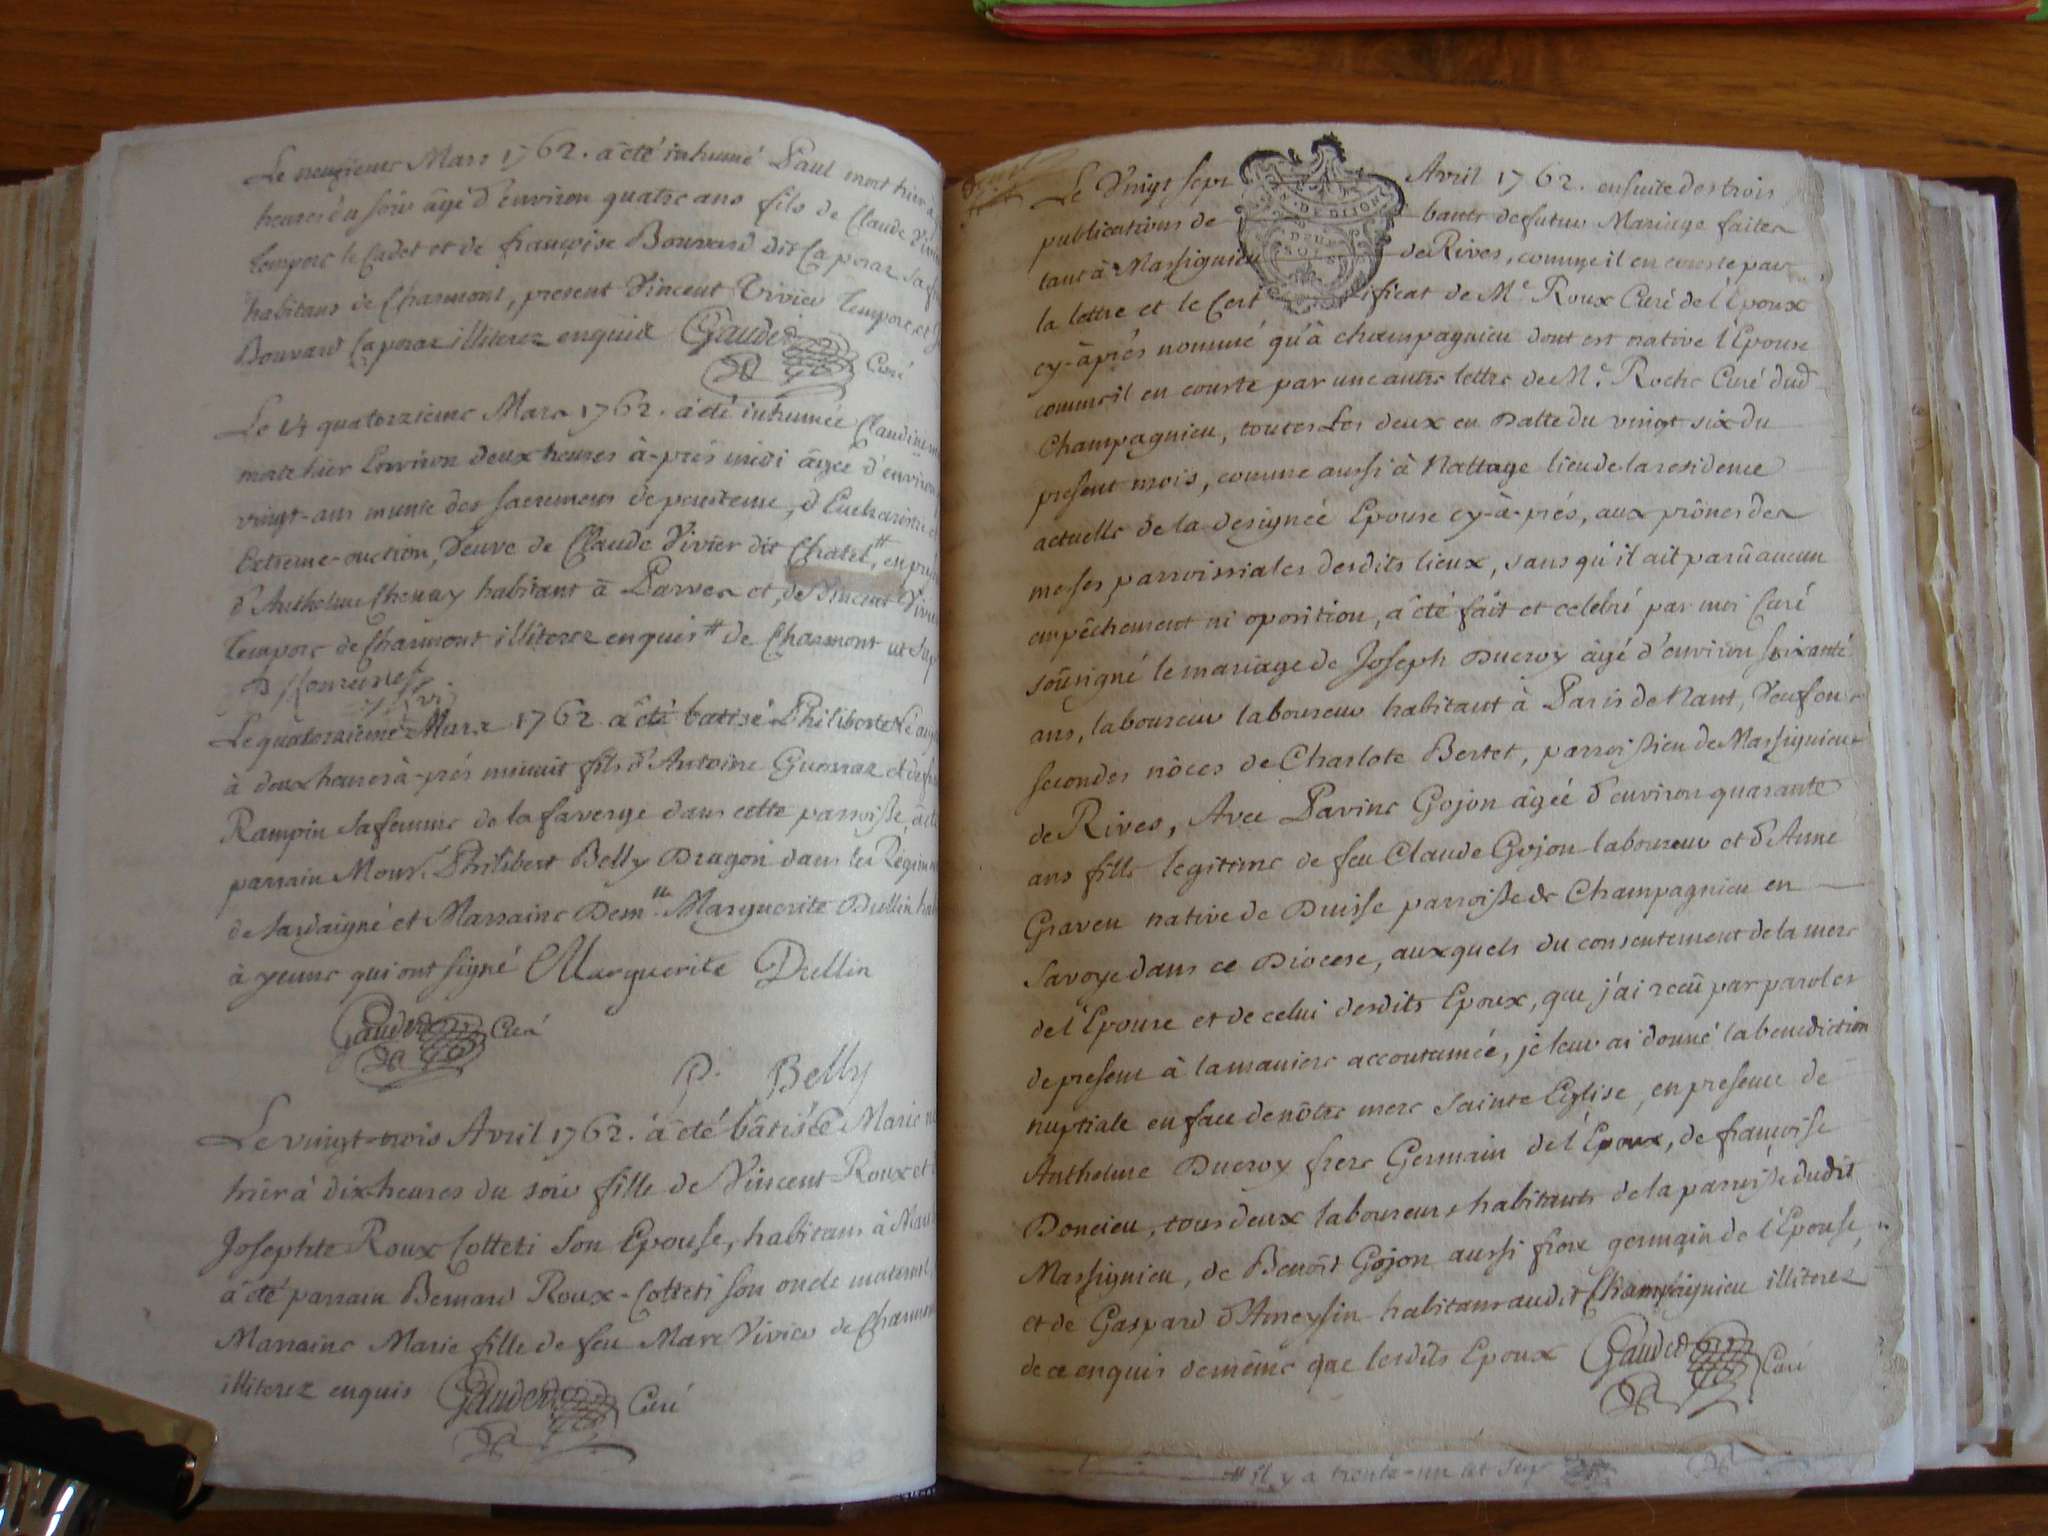 Le neuvieme Mars 1762. a êté inhumé Paul mort hier a
heures du soir âgé d'environ quatre ans fils de Claude Vivie
tempore le Cadet et de françoise Bouvard dit Caporaz sa fe
habitans de Charmont, present Vincent Vivier tempore, et
Bouvard Caporaz illiterez enquis Gaudet Curé
Le 14 quatorzieme Mars 1762. a été inhumée Claudine
morte hier Environ deux heures à-prés midi âgée d'environ
vingt-ans munie des sacremens de penitence, d'Eucharistie
Extreme-onction, Veuve de Claude Vivier dit Chatel, en pré
d'Anthelme Chenay habitant à Parves et, de Vincent Vivi
tempore de Charmont illiterez enquis # de Charmont ut sup
Le quatorzieme Mars 1762 a êté batisé Philiberte Né au
à deux heures à-prés minuit fils d'Antoine Guerraz et de fr
Rampin sa femme de la faverge dans cette parroisse, a été
parrain Monsr. Philibert Belly Dragon dans les Régim
de sardaigne et Marraine Demlle Marguerite Dullin hab
à yenne qui ont signé Marguerite Dullin
Gaudet Curé
P. Belly
Le vingt-trois Avril 1762. a été bâtisée Marie n
hier à dix heures du soir fille de Vincent Roux et
Josephte Roux Cotteti son Epouse, habitans à Mau
a été parrain Bernard Roux-Cotteti son oncle maternel,
Marraine Marie fille de feu Marc Vivier de Charmon
illiterez enquis Gaudet Curé
Le Vingt sept Avril 1762. ensuite des trois
publications de bants de futur Mariage faites
tant à Massignieu de Rives, comme il en conste par
la lettre et le Certificat de Mc. Roux Curé de l'Epoux
cy-àprés nommé qu'à champagnieu dont est native l'Epouse
comme il en conste par une autre lettre de Mc. Roche Curé dud
Champagnieu, toutes Les deux en Datte du vingt six du
present mois, comme aussi à Nattage lieu de la residence
actuelle de la designée Epouse cy-à-prés, aux prônes des
messes parroissiales desdits lieux, sans qu'il ait parû aucun
empêchement ni oposition, a été fait et celebré par moi Curé
soûsigné le mariage de Joseph Ducroy âgé d'environ soixante
ans, laboureur laboureur habitant à Paris de Nant, Veuf en
secondes nôces de Charlote Bertet, parroissien de Massignieu
de Rives, Avec Pavine Gojon âgée d'environ quarante
ans fille legitime de feu Claude Gojon laboureur et d'Anne
Graven native de Duisse parroisse de Champagnieu en
Savoye dans ce Diocese, auxquels du consentement de la mere
de l'Epouse et de celui desdits Epoux, que j'ai reçû par paroles
de present à la maniere accoutumée, je leur ai donné la benediction
nuptiale en face de nôtre mere Sainte Eglise, en presence de
Anthelme Ducroy frere Germain de l'Epoux, de françoise
Doncieu, tous deux laboureurs habitants de la parroisse dudit
Massignieu, de Benoît Gojon aussi frere germain de l'Epouse,
et de Gaspard d'Ameysin habitans audit Champagnieu illiterez
de ce enquis de même que lesdits Epoux Gaudet Curé
# il y a trente-un